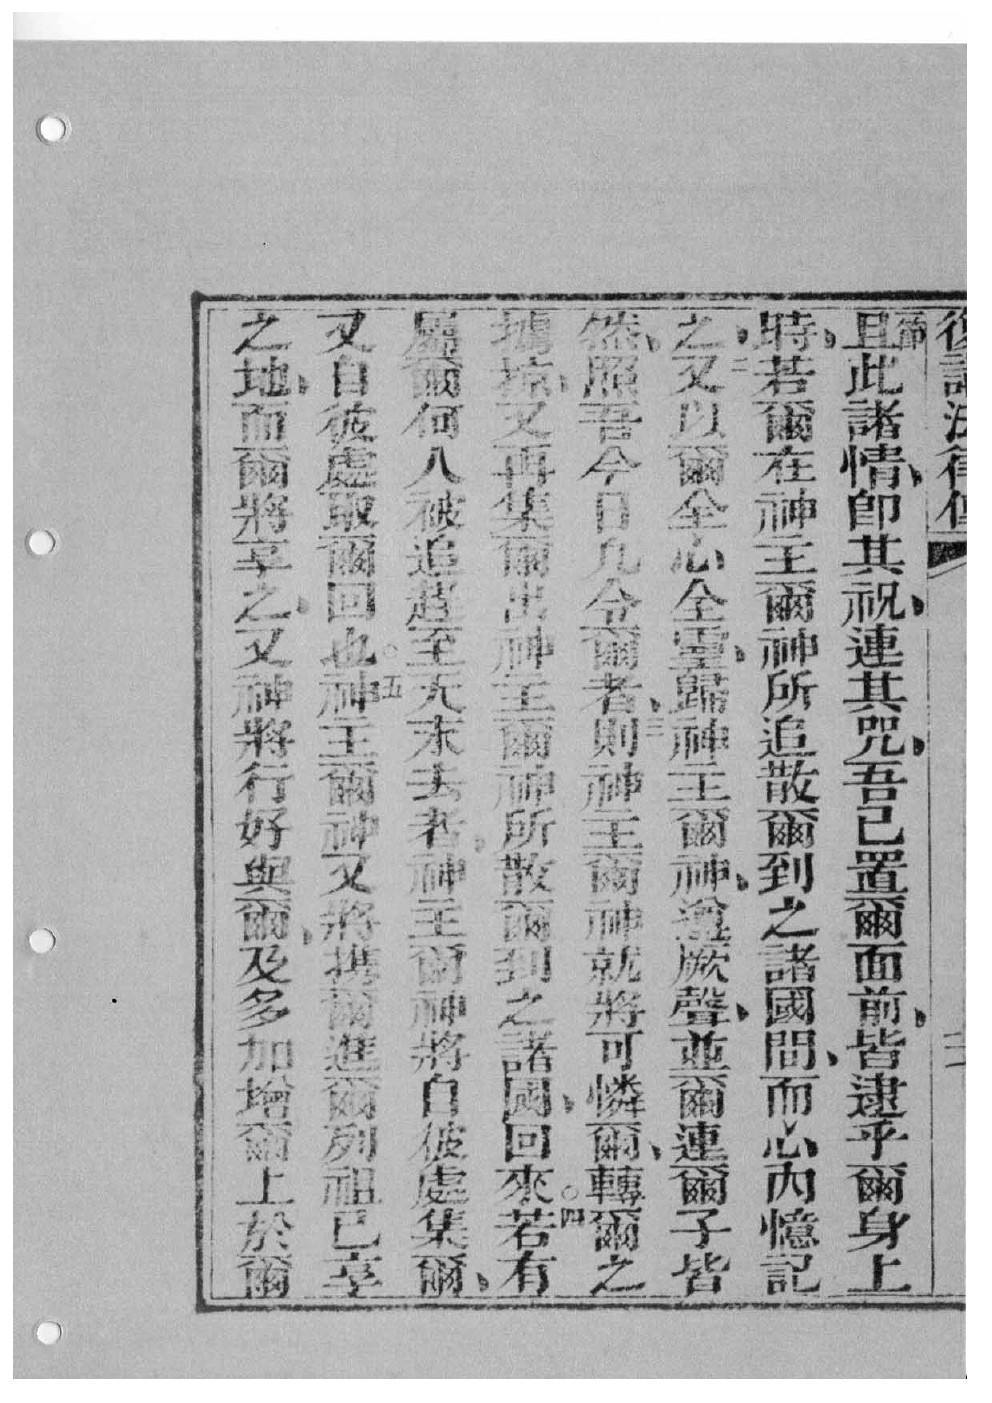 復講法律傳
節
且此諸情、即其祝、連其咒、吾已置爾面前、皆逮乎爾身上
時、若爾在神主爾神所追散爾到之諸國間、而心內憶記
之、二又以爾全心全靈、歸神主爾神、遵厥聲、並爾連爾子皆
然、照吾今日凡令爾者、三則神主爾神就將可憐爾、轉爾之
擄掠、又再集爾出神主爾神所散爾到之諸國、回來。四若有
屬爾何人被追趕至天末去者、神主爾神將自彼處集爾、
又自彼處取爾回也。五神主爾神又將攜爾進爾列祖已享
之地、而爾將享之、又神將行好與爾、及多加增爾上於爾